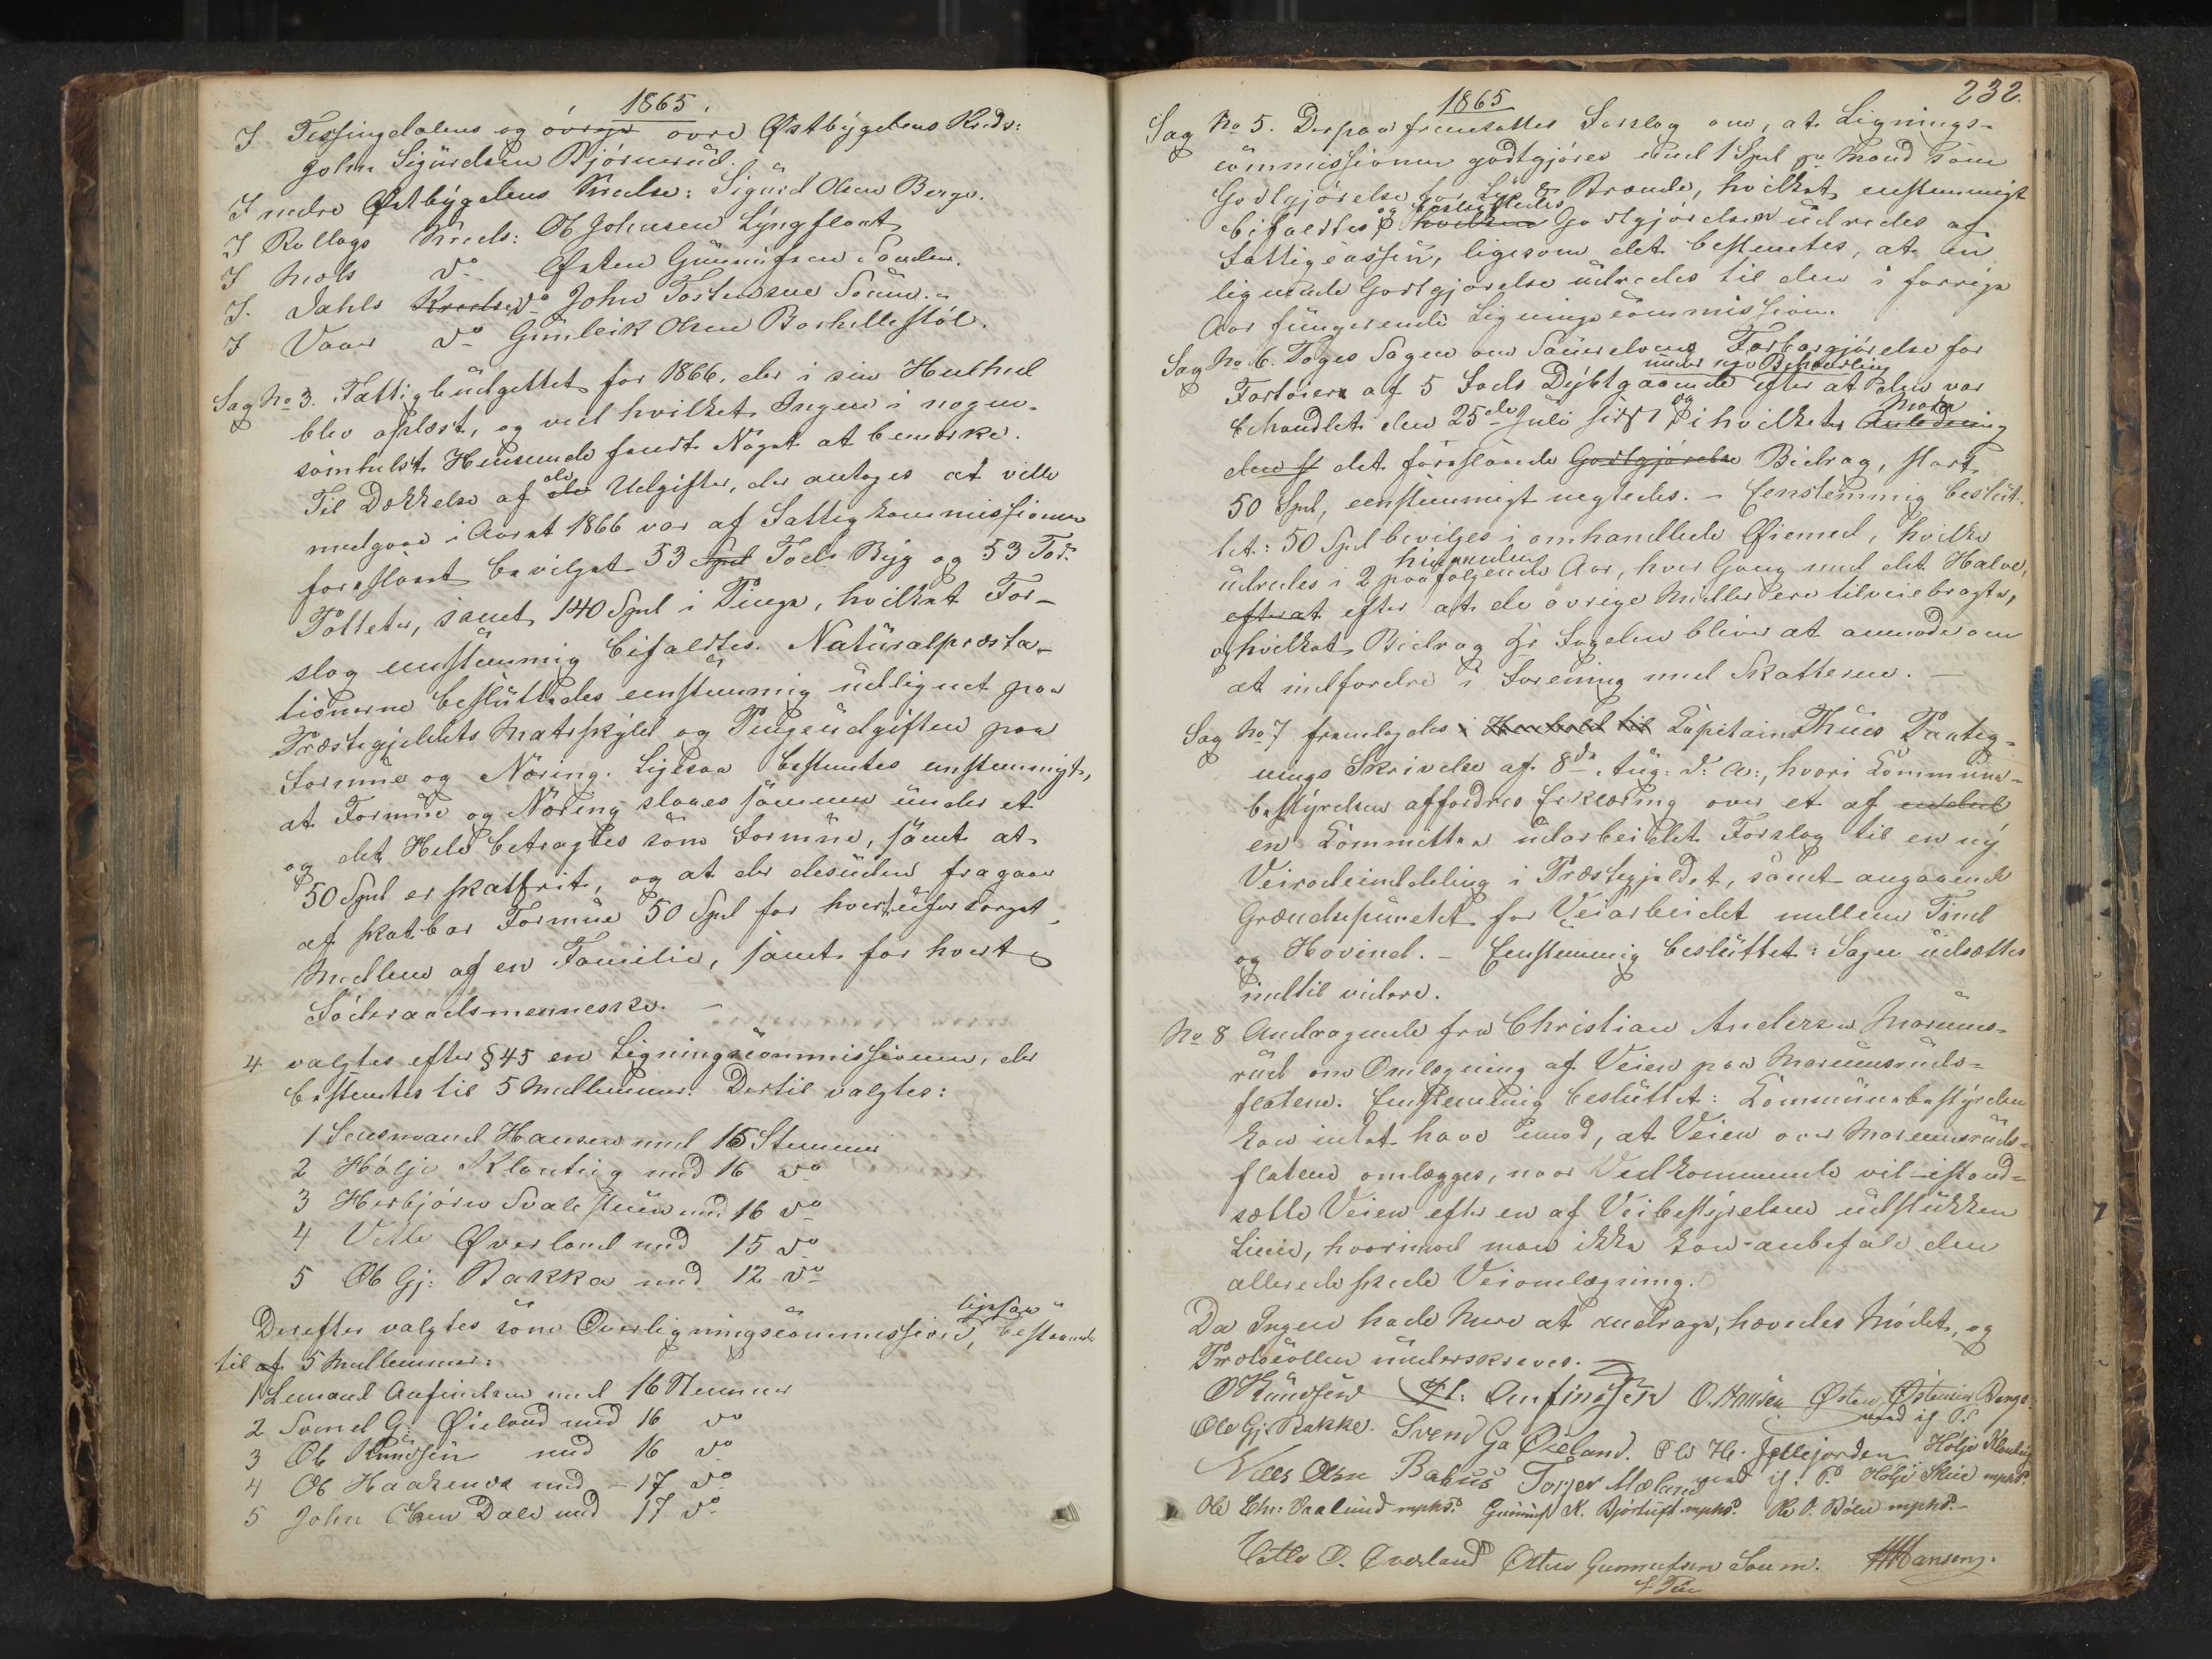 1865.
I Tessingdalens og øvre Østbygdens Kreds:
John Sigurdsen Bjørnerud.
I nedre Østbygdens Kreds: Sigurd Olsen Berge.
I Rollags Kreds: Ole Johnsen Lyngflaat
I Mæls do Østen Gunnulfsen Sanden.
I. Dahls Kreds do John Tostensen Soum.
I Vaaer do Gunleik Olsen Boskellestøl.
Sag No 3. Fattigbudgettet for 1866, der i sin Heelhed
blev oplæst, og ved hvilket Ingen i nogen-
somhelst Henseende fandt Noget at bemærke.
Til Dækkelse af de Udgifter, der antages at ville
medgaae i Aaret 1866 var af Fattigkommissionen
foreslaaet bevilget 53 Spd Tdr Byg og 53 Tdr
Potteter, samt 140 Spd i Penge, hvilket For-
slag eenstemmig bifaldtes. Naturalpræsta-
tionerne besluttedes eenstemmig udlignet paa
Præstegjeldets Matrskyld og Pengeudgiften paa
Formue og Næring. Ligesaa bestemtes eenstemmigt,
at Formue og Næring slaaes sammen under et
og det Hele betragtes som Formue, samt at
50 Spd er skatfrit, og at der desuden fragaar
af skatbar Formue 50 Spd for hvert uforsørget
Medlem af en Familie, samt for hvert
Føderaadsmenneske. –
4 valgtes efter § 45 en Ligningscommission, der
bestemtes til 5 Medlemmer. Dertil valgtes:
1 Lensmand Hansen med 16 Stemmer
2 Hølje Klonteig med 16 do
3 Herbjørn Svalestuen med 16 do
4 Vetle Øverland med 15 do
5 Ole Gj: Bakka med 12 do
ligesaa
Derefter valgtes som Overligningscommission, bestaaende
til af 5 Medlemmer:
1 Lensmand Anfindsen med 16 Stemmer
2 Svend G: Øieland med 16 do
3 Ole Knudsen med 16 do
4 Ole Haakenes med – 17 do
5 John Olsen Dale med 17 do
1865
232.
Sag No 5. Derpaa fremsattes Forslag om, at Lignings-
commissionen godtgjøres med 1 Spd pr Mand som
Godtgjørelse for Lys & Brænde, hvilket eenstemmigt
og besluttedes
bifaldtes hvilken Godtgjørelsen udredes af
Fattigcassen, ligesom det bestemtes, at en
lignende Godtgjørelse udredes til den i forrige
Aar fungerende Ligningscommission.
Sag No 6. Toges Sagen om Sauerelvens Farbargjørelse for
under nye Behandling
Fartøier af 5 Fods Dybtgaaende efter at den var
og Møde
behandlet den 25de Juli sidst i hvilket Anledning
den f det foreslaaede Godtgjørelse Bidrag, stort
50 Spd, eenstemmigt negtedes. – Eenstemmig beslut-
tet: 50 Spd bevilges i omhandlede Øiemed, hvilke
hinanden
udredes i 2 paafølgende Aar, hver Gang med det Halve,
efterat efter at de øvrige Midler ere tilveiebragte,
og hvilket Bidrag Hr Fogden bliver at anmode om
at indfordre i Forening med Skatterne. –
Sag No 7 fremlagdes i Henhold til Kapitain Thues Paateg-
nings Skrivelse af 8de Aug: d: A:, hvori Kommune-
bestyrelsen affordres Erklæring over et af endeel
en Kommittee udarbeidet Forslag til en ny
Veirodeinddeling i Præstegjeldet, samt angaaende
Grændsepunctet for Veiarbeidet mellem Tind
og Hovind. – Eenstemmig besluttet: Sagen udsættes
indtil videre.
No 8 Andragende fra Christian Andersen Marums-
rud om Omlægning af Veien paa Marumsruds-
flatene. Eenstemmig besluttet: Kommunebestyrelsen
kan intet have imod, at Veien over Marumsruds-
flatene omlægges, naar Vedkommende vil istand-
sætte Veien efter en af Veibestyrelsen udstukken
Linie, hvorimod man ikke kan anbefale den
allerede skede Veiomlægning.
Da Ingen havde Mere at andrage, hævedes Mødet, og
Protocollen underskreves. –
O Knudsen H: Anfinssen O. Hansen Østen Østensen Berge
med i. P.
Ole Gj. Bakke. Svend Ga Øieland. Ole H. Jellejorden Holje Klonteig
Niels Olsen Bakus Torjer Mæland med i. P. Holje Skeie mphP.
Ole Chr: Vaalund mphP. Gunnulf K. Bjørtuft mphP. Ole O. Bøen mphP. –
Vetle O. Overland Østen Gunnufsen Soum. HHansen.